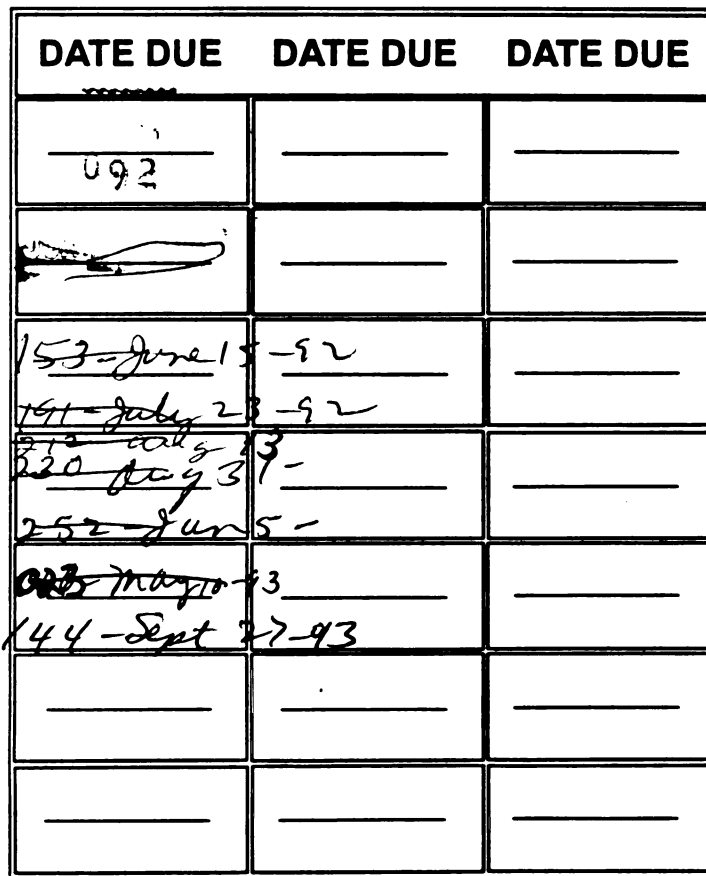 DATE DUE DATE DUE DATE DUE
092
153-June 15-92
191-July 23-92
212 Aug 13
220 Aug 31-
252-Jan 5-
003 May 10-93
144-Sept 27-93